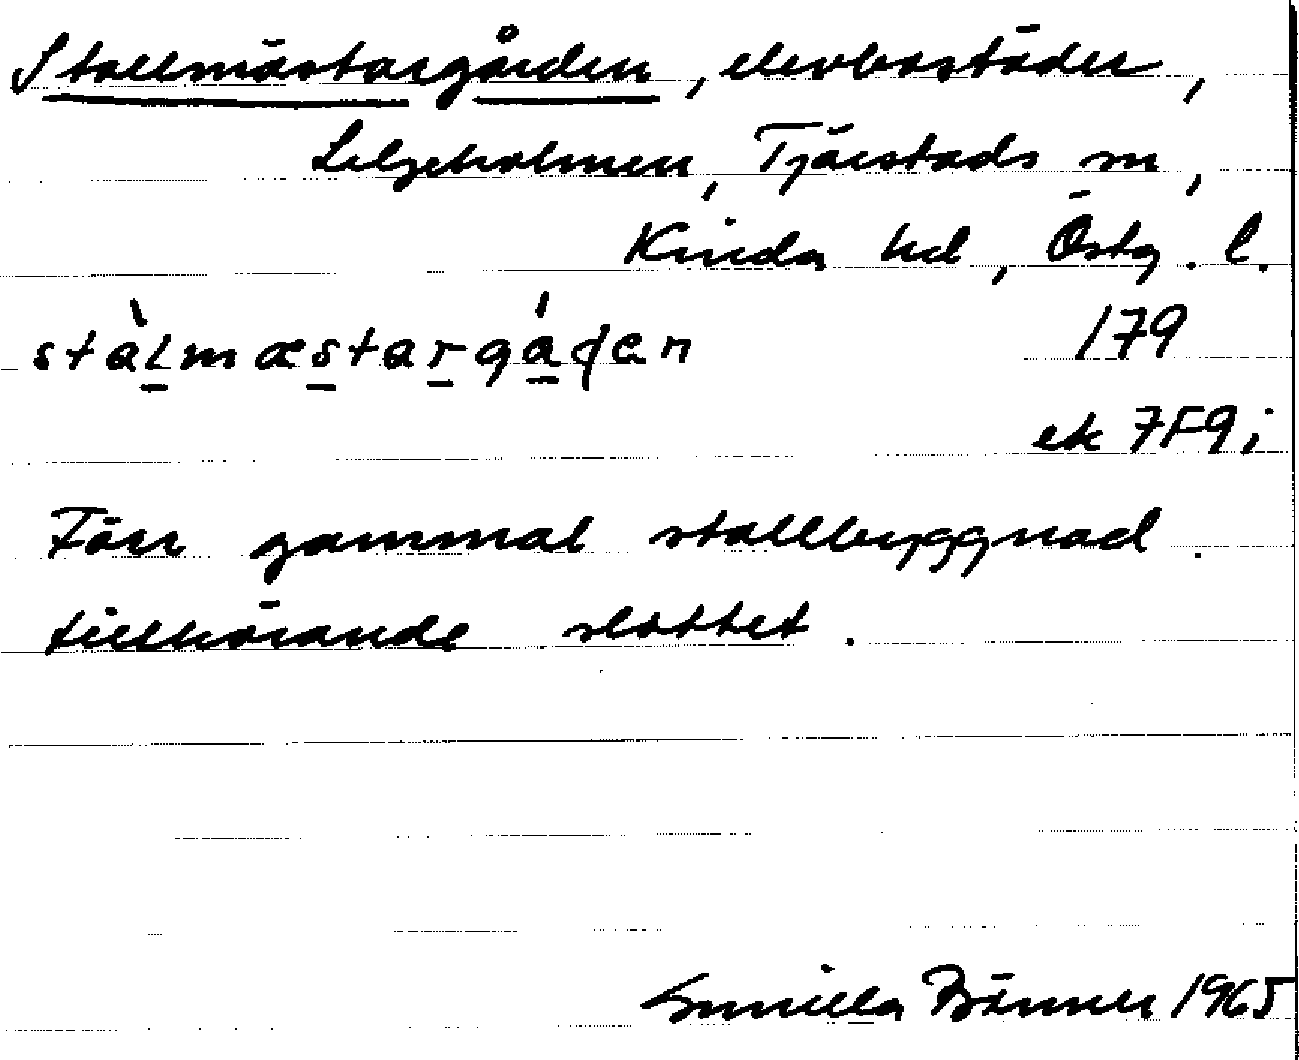 Stallmästargården, elevbostäder,
Liljeholmen, Tjärstads sn,
Kinda hd, Östg. l.
stàlmæstargáɖen 179
ek 7F9i
Förr gammal stallbyggnad
tillhörande slottet.
Gunilla 1965